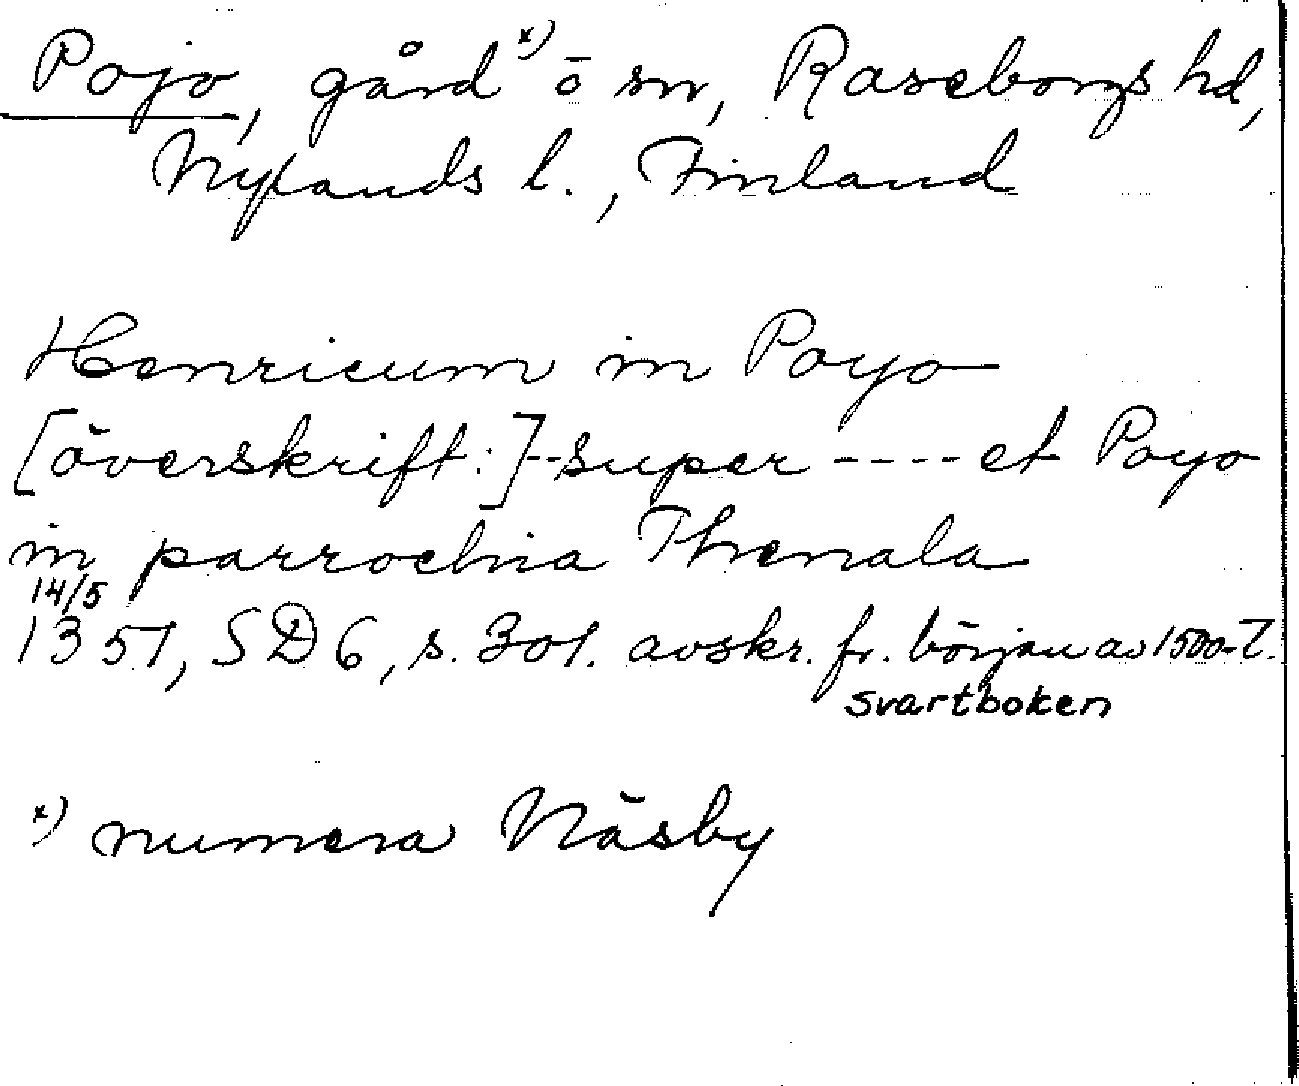 Pojo, gård x) ö sn, Raseborgs hd,
Nylands l., Finland
Henricum in Poyo
[överskrift:]--super ---- et Poyo
in parrochia Thenala
14/5
1351, SD 6, s. 301. avskr. fr. början av 1500-t.
svartboken
x) numera Näsby